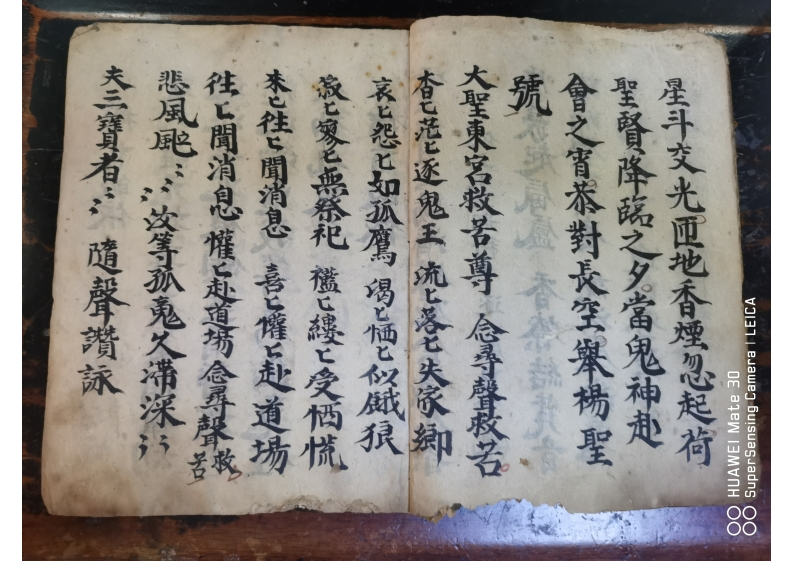 星斗交光匝地香煙忽起荷
聖賢降臨之夕當鬼神赴
會之宵恭對長空舉楊聖
號
大聖東宮救苦尊 念尋聲救苦
杳匕茫匕逐鬼王 流匕落匕失家鄉
哀匕怨匕如孤鷹 渴匕恓匕似餓狼
寂匕寥匕無祭祀 襤匕縷匕受恓慌
來匕往匕聞消息 喜匕懽匕赴道場
往匕聞消息 懽匕赴道場 念尋聲救苦
悲風颰〻〻 汝等孤魂久滯深〻〻
夫三寶者〻〻 隨聲讚詠
HUAWEI Mate 30
SuperSensing Camera | LEICA